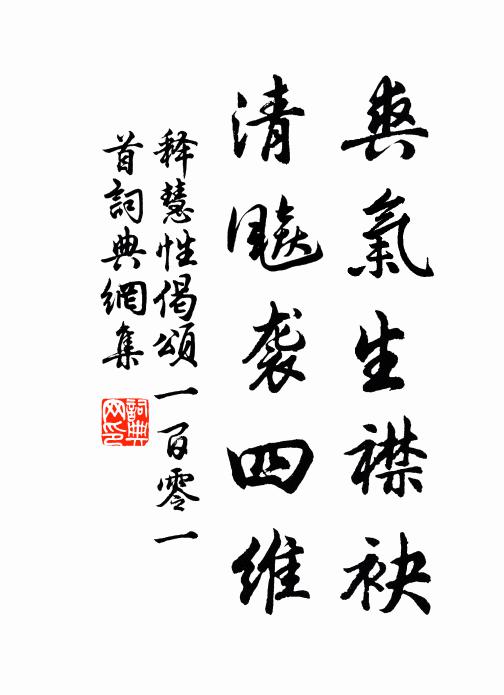 爽氣生襟袂
清飈袭四维
释慧性偈頌一百零一
首詞典網集
詞典网印